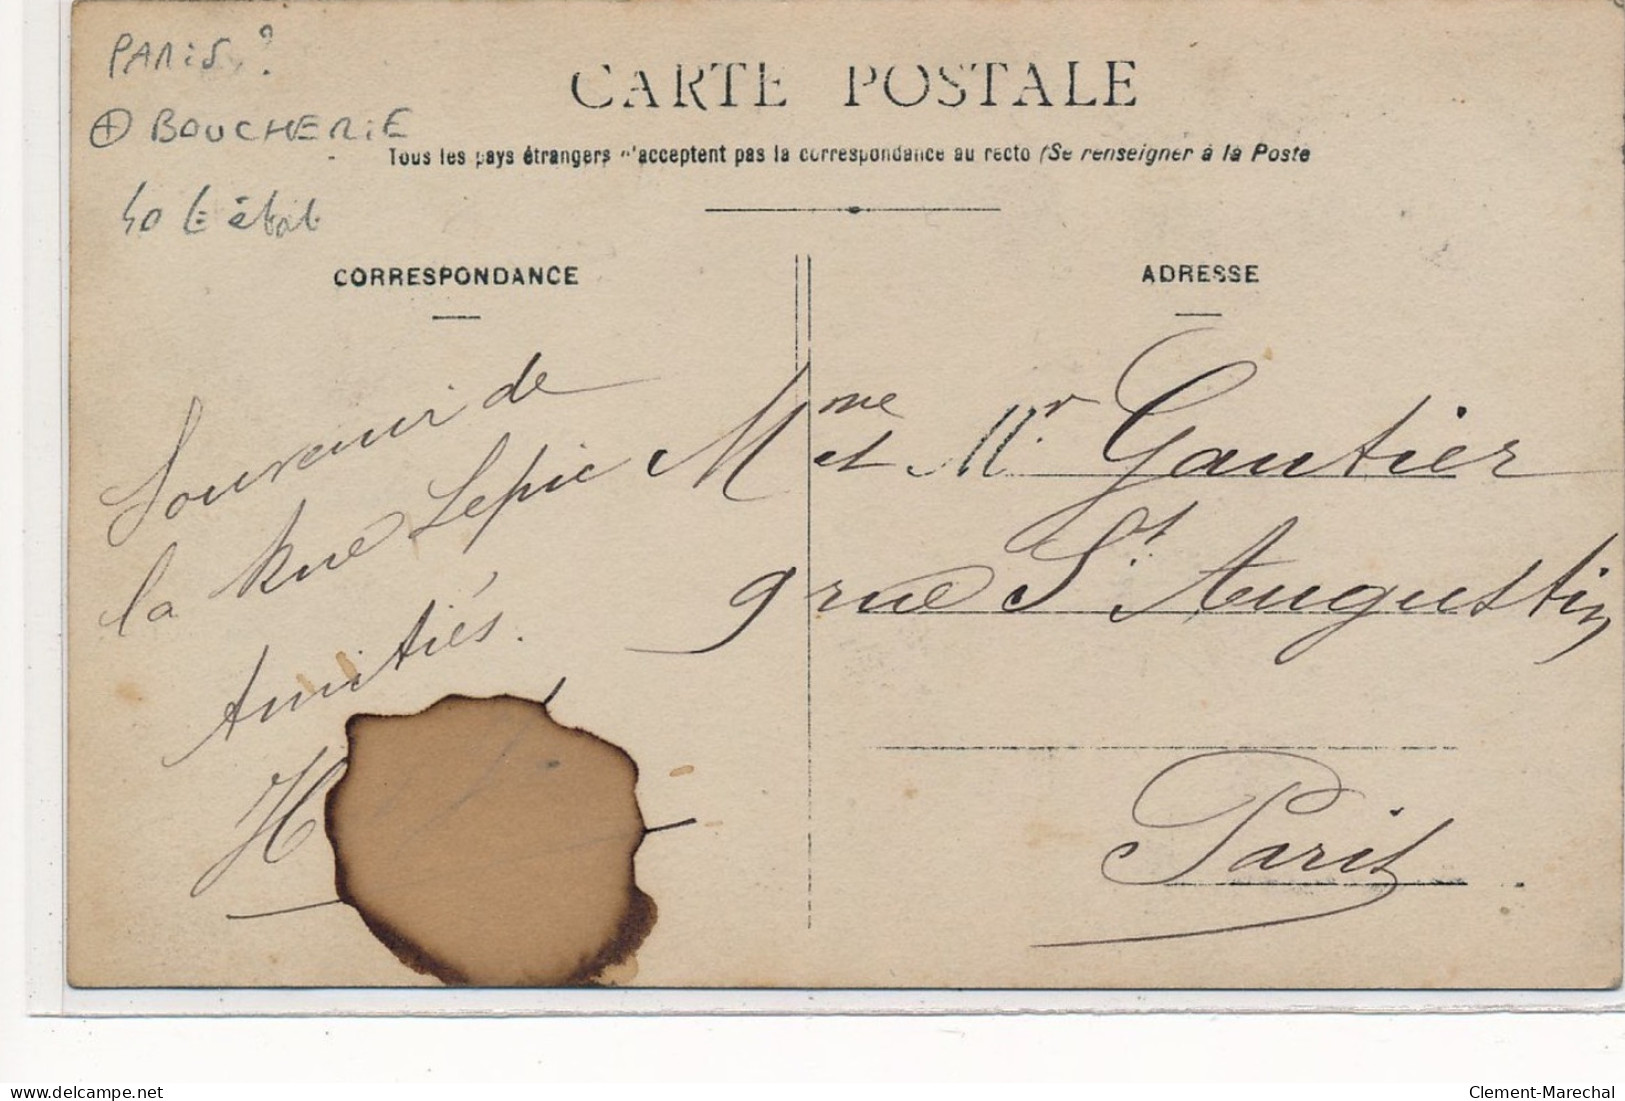 PARIS ?
+ BOUCHERIE
40 € état
CARTE POSTALE
Tous les pays étrangers n'acceptent pas la correspondance au recto (Se renseigner à la Poste
CORRESPONDANCE
Souvenir de
la Rue Lepic
Amitiés.
H
ADRESSE
Mme et Mr. Gautier
9 rue St. Augustin
Paris
delcampe.net
Clement-Marechal